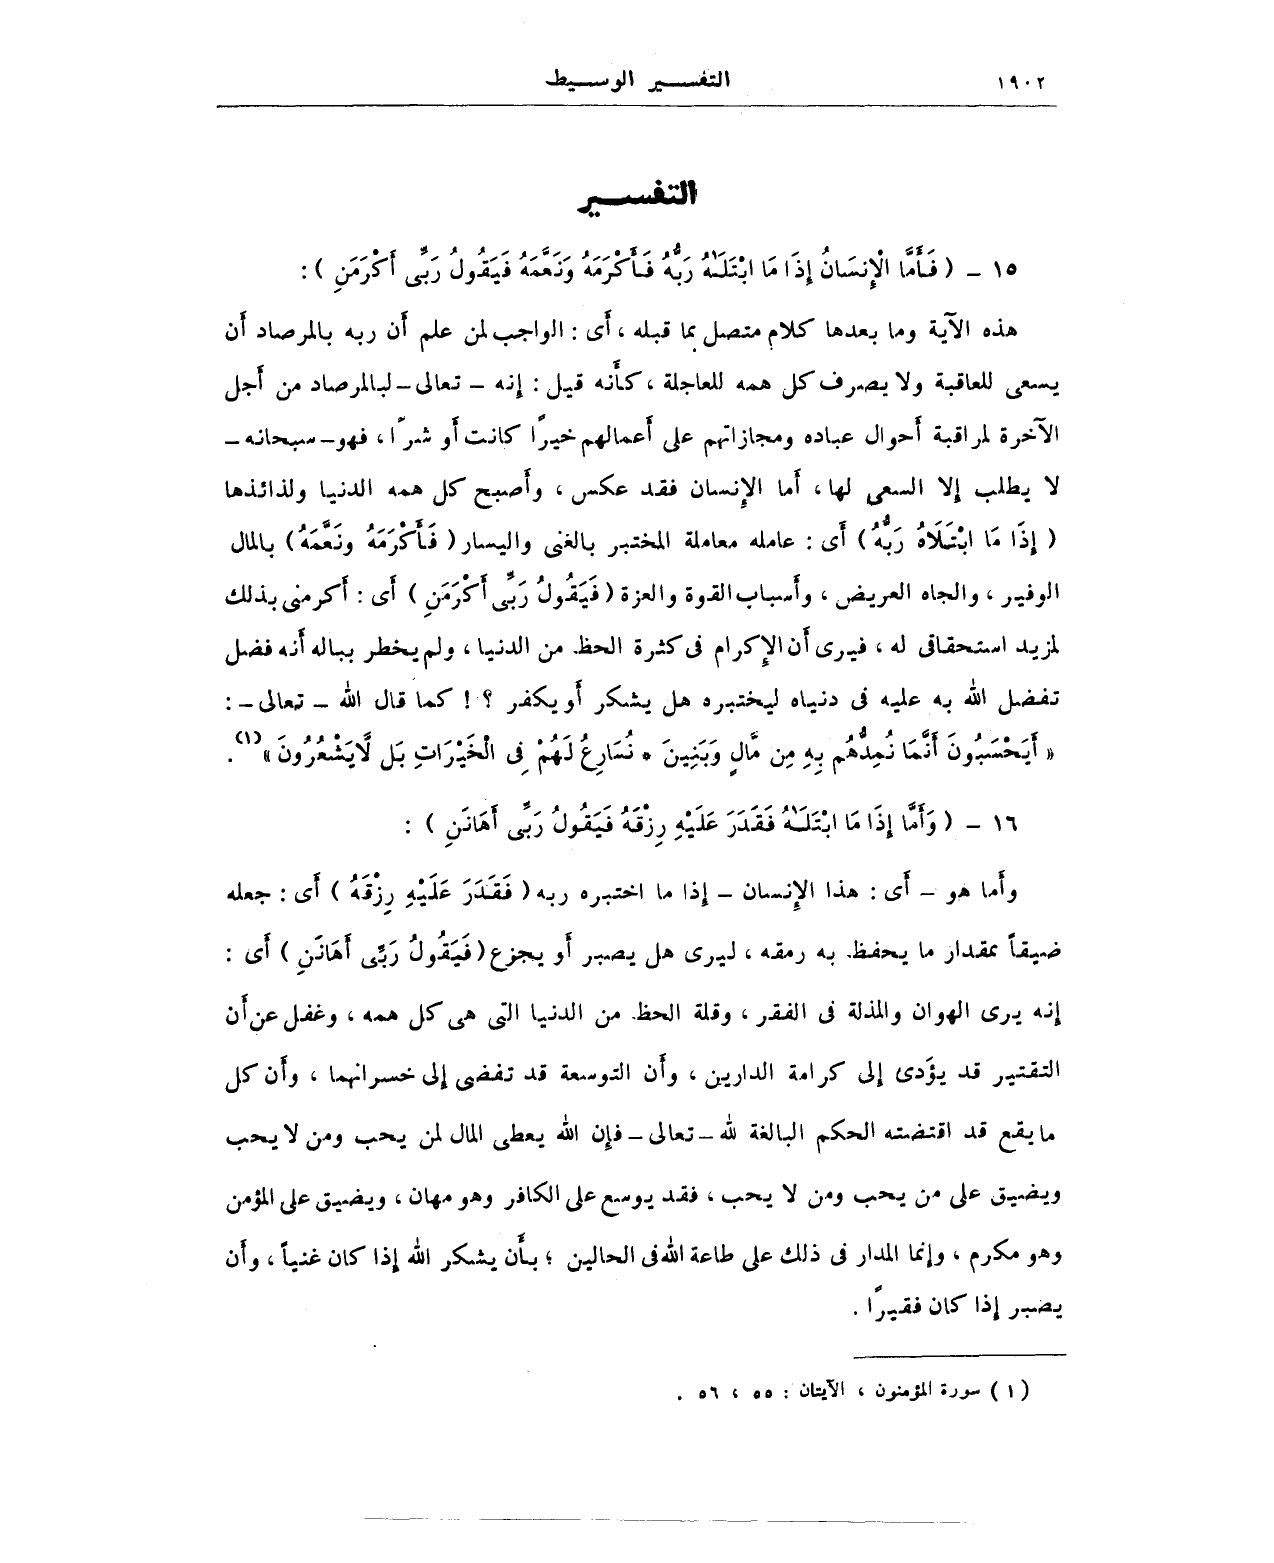 ١٩٠٢
التفسير الوسيط
التفسير
١٥ - ( فَأَمَّا الْإِنسَانُ إِذَا مَا ابْتَلَـٰهُ رَبُّهُ فَأَكْرَمَهُ وَنَعَّمَهُ فَيَقُولُ رَبِّى أَكْرَمَنِ ) :
هذه الآية وما بعدها كلام متصل بما قبله ، أى : الواجب لمن علم أن ربه بالمرصاد أن
يسعى للعاقبة ولا يصرف كل همه للعاجلة ، كأنه قيل : إنه - تعالى - لبالمرصاد من أجل
الآخرة لمراقبة أحوال عباده ومجازاتهم على أعمالهم خيرًا كانت أو شرًا ، فهو - سبحانه -
لا يطلب إلا السعى لها ، أما الإنسان فقد عكس ، وأصبح كل همه الدنيا ولذائذها
( إِذَا مَا ابْتَلَاهُ رَبُّهُ ) أى : عامله معاملة المختبر بالغنى واليسار ( فَأَكْرَمَهُ ونَعَّمَهُ ) بالمال
الوفير ، والجاه العريض ، وأسباب القوة والعزة ( فَيَقُولُ رَبِّى أَكْرَمَنِ ) أى : أكرمنى بذلك
لمزيد استحقاقى له ، فيرى أن الإكرام فى كثرة الحظ من الدنيا ، ولم يخطر بباله أنه فضل
تفضل الله به عليه فى دنياه ليختبره هل يشكر أو يكفر ؟ ! كما قال الله - تعالى - :
« أَيَحْسَبُونَ أَنَّمَا نُمِدُّهُم بِهِ مِن مَّالٍ وَبَنِينَ * نُسَارِعُ لَهُمْ فِى الْخَيْرَاتِ بَل لَّايَشْعُرُونَ »(١) .
١٦ - ( وَأَمَّا إِذَا مَا ابْتَلَـٰهُ فَقَدَرَ عَلَيْهِ رِزْقَهُ فَيَقُولُ رَبِّى أَهَانَنِ ) :
وأما هو - أى : هذا الإنسان - إذا ما اختبره ربه ( فَقَدَرَ عَلَيْهِ رِزْقَهُ ) أى : جعله
ضيقاً بمقدار ما يحفظ به رمقه ، ليرى هل يصبر أو يجزع ( فَيَقُولُ رَبِّى أَهَانَنِ ) أى :
إنه يرى الهوان والمذلة فى الفقر ، وقلة الحظ من الدنيا التى هى كل همه ، وغفل عن أن
التقتير قد يؤَدى إلى كرامة الدارين ، وأن التوسعة قد تفضى إلى خسرانهما ، وأن كل
ما يقع قد اقتضته الحكم البالغة لله - تعالى - فإن الله يعطى المال لمن يحب ومن لا يحب
ويضيق على من يحب ومن لا يحب ، فقد يوسع على الكافر وهو مهان ، ويضيق على المؤمن
وهو مكرم ، وإنما المدار فى ذلك على طاعة الله فى الحالين ؛ بأن يشكر الله إذا كان غنياً ، وأن
يصبر إذا كان فقيرًا .
(١) سورة المؤمنون ، الآيتان : ٥٥ ، ٥٦ .